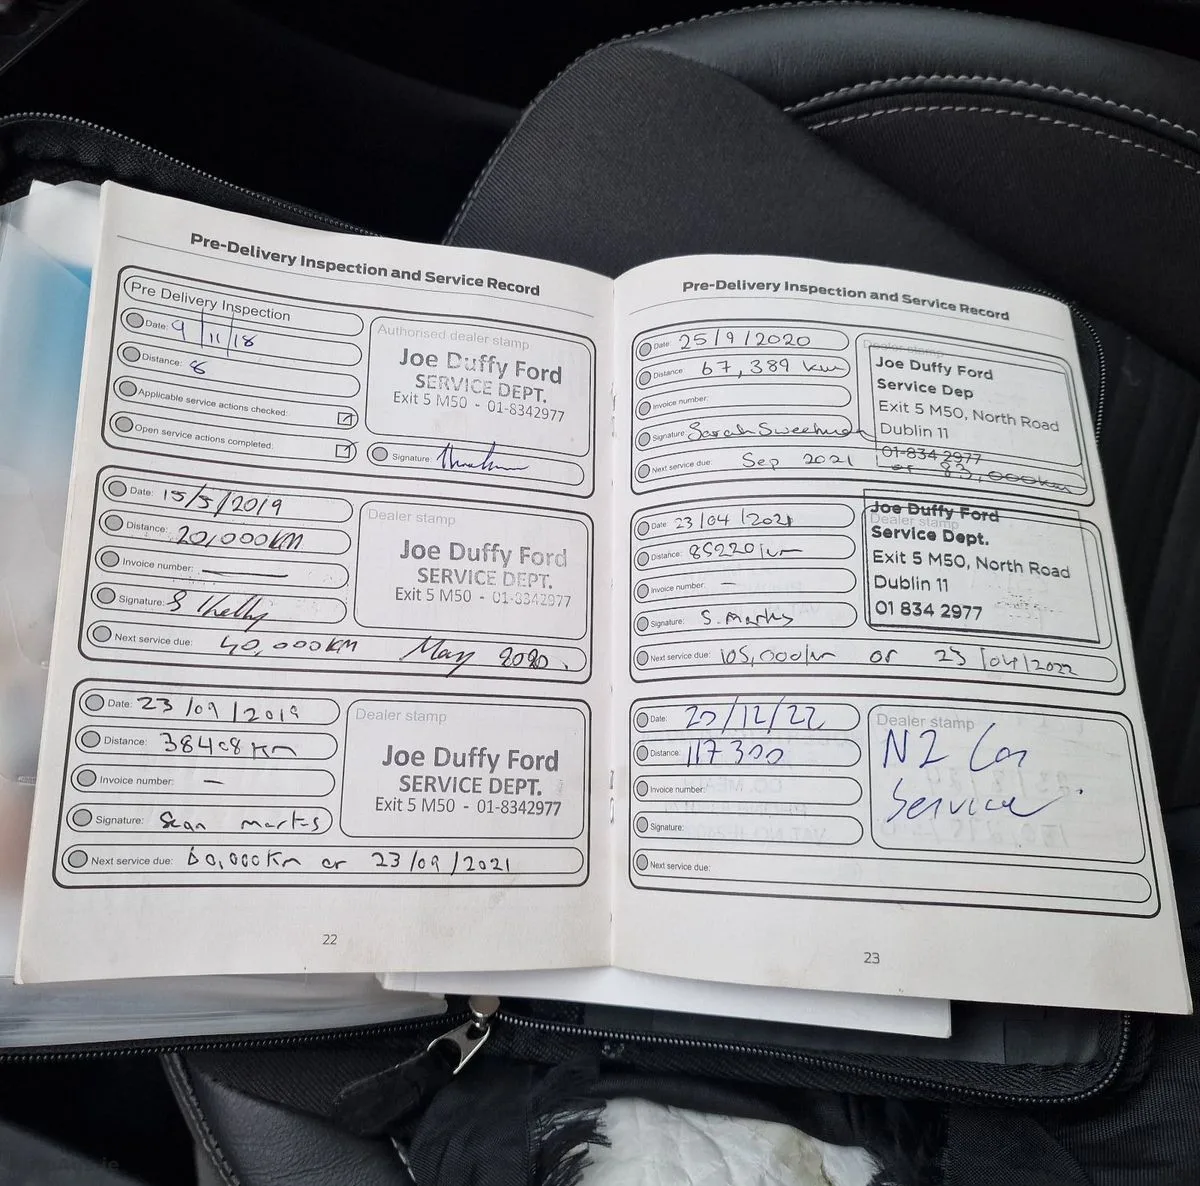 Pre-Delivery Inspection and Service Record
Pre Delivery Inspection
Date: 9/11/18
Distance: 8
Applicable service actions checked:
Open service actions completed:
Authorised dealer stamp
Joe Duffy Ford
SERVICE DEPT.
Exit 5 M50 - 01-8342977
Signature:
Date: 15/5/2019
Distance: 20,000KM
Invoice number: —
Signature: S Kelly
Dealer stamp
Joe Duffy Ford
SERVICE DEPT.
Exit 5 M50 - 01-8342977
Next service due: 40,000KM May 2020.
Date: 23/09/2019
Distance: 38408 km
Invoice number: —
Signature: Sean marks
Dealer stamp
Joe Duffy Ford
SERVICE DEPT.
Exit 5 M50 - 01-8342977
Next service due: 60,000km or 23/09/2021
22
Pre-Delivery Inspection and Service Record
Date: 25/9/2020
Distance: 67,389 km
Invoice number:
Signature: Sarah
Dealer stamp
Joe Duffy Ford
Service Dep
Exit 5 M50, North Road
Dublin 11
01-834 2977
Next service due: Sep 2021 or 83,000km
Date: 23/04/2021
Distance: 85220km
Invoice number: —
Signature: S. Marks
Dealer stamp
Joe Duffy Ford
Service Dept.
Exit 5 M50, North Road
Dublin 11
01 834 2977
Next service due: 105,000km or 23/04/2022
Date: 20/12/22
Distance: 117300
Invoice number:
Signature:
Next service due:
Dealer stamp
N2 Car
Service
23